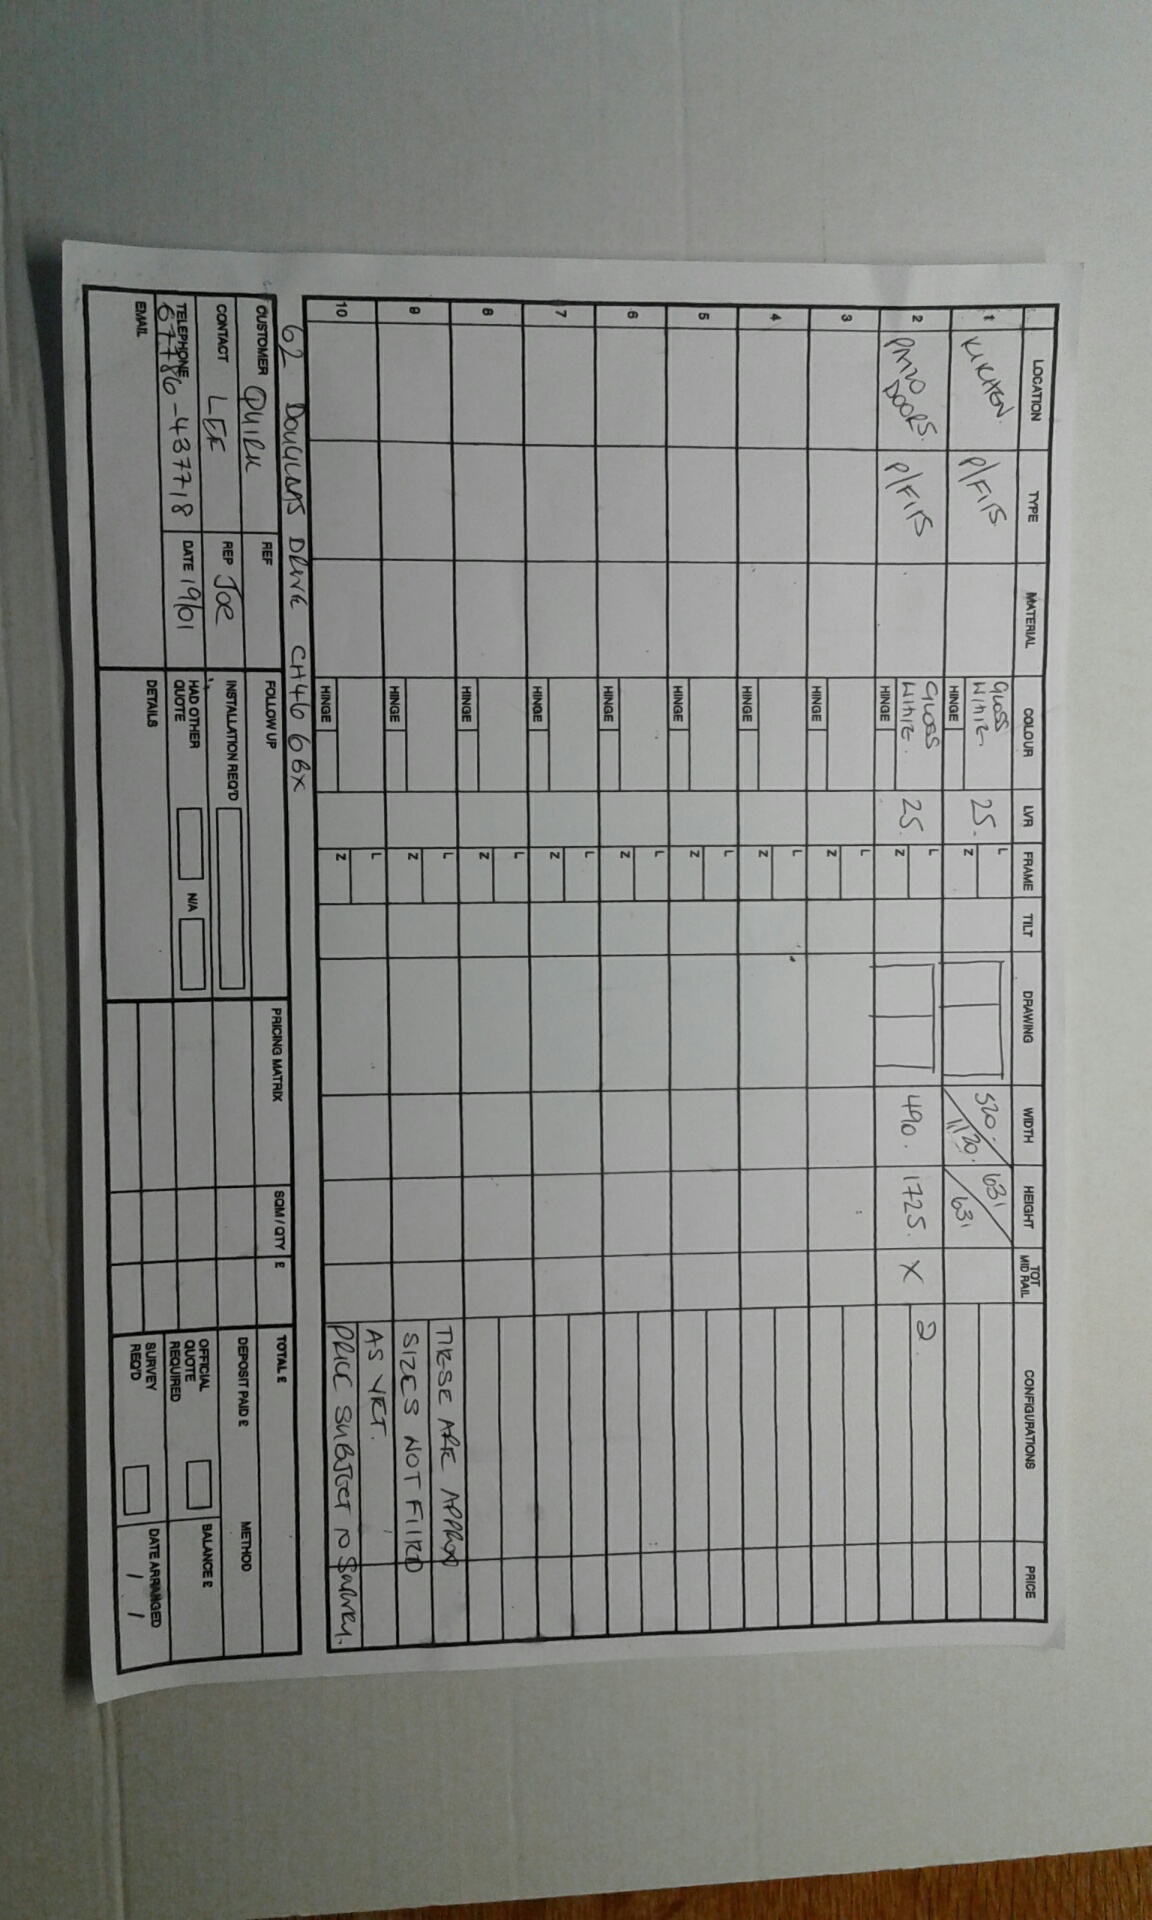 LOCATION TYPE MATERIAL COLOUR LVR FRAME TILT DRAWING WIDTH HEIGHT TOT MID RAIL CONFIGURATIONS PRICE
1 KITCHEN. P/FITS GLOSS WHITE 25. L 520. / 631
HINGE Z 1120. / 631
2 PATIO DOORS. P/FITS GLOSS WHITE. 25. L 490. 1725. X 2
HINGE Z
3 L
HINGE Z
4 L
HINGE Z
5 L
HINGE Z
6 L
HINGE Z
7 L
HINGE Z
8 L
HINGE Z
9 L THESE ARE APPROX
HINGE Z SIZES NOT FITTED
10 L AS YET.
HINGE Z PRICE SUBJECT TO SURVEY.
62 DOUGLAS DRIVE CH46 6BX
CUSTOMER QUIRK REF FOLLOW UP PRICING MATRIX SQM / QTY £ TOTAL £
CONTACT LEE REP JOE INSTALLATION REQ'D DEPOSIT PAID £ METHOD
TELEPHONE 07786-437718 DATE 19/01 HAD OTHER QUOTE N/A OFFICIAL QUOTE REQUIRED BALANCE £
EMAIL DETAILS SURVEY REQ'D DATE ARRANGED / /